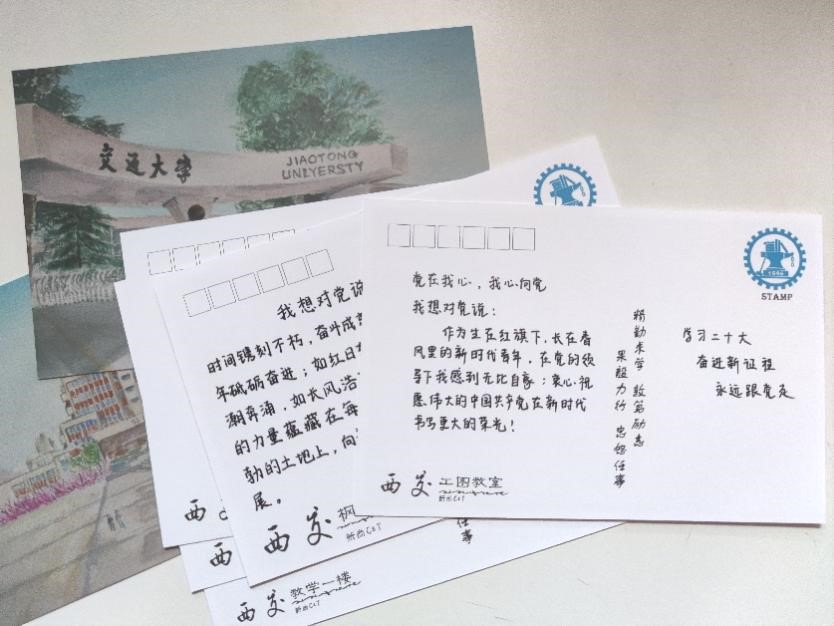 交通大学
JIAOTONG
UNIYERSTY
我想对党说
时间镌刻不朽，奋斗成
年砥砺奋进；如红日
潮奔涌，如长风浩
的力量蕴藏在每
勃的土地上，向
展。
西交
枫
西
西交
教学一楼
任
事
1896
STAMP
党在我心，我心向党
我想对党说：
作为生在红旗下，长在春
风里的新时代青年，在党的领
导下我感到无比自豪：衷心祝
愿伟大的中国共产党在新时代
书写更大的荣光！
精勤求学 敦笃励志
果毅力行 忠恕任事
学习二十大
奋进新征程
永远跟党走
西交
工图教室